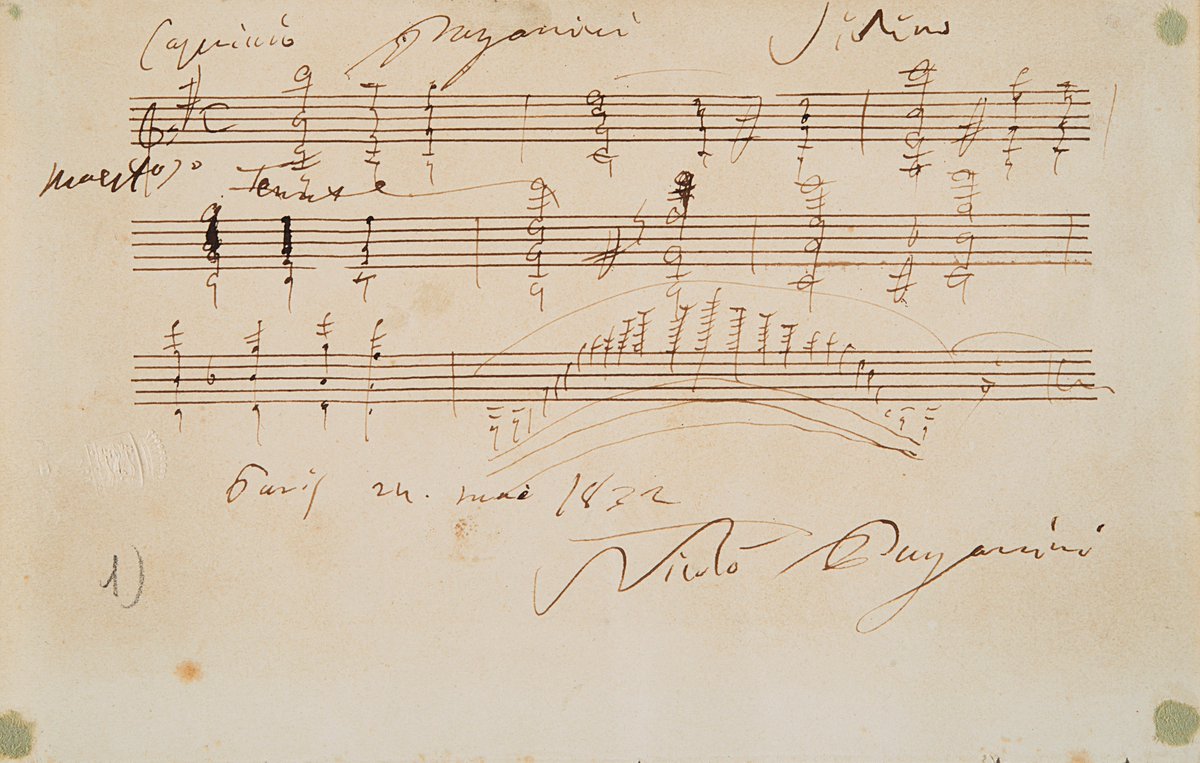 Capriccio Paganini Violino
maestoso Tenute
Paris 24. mai 1832
Nicolò Paganini
1)